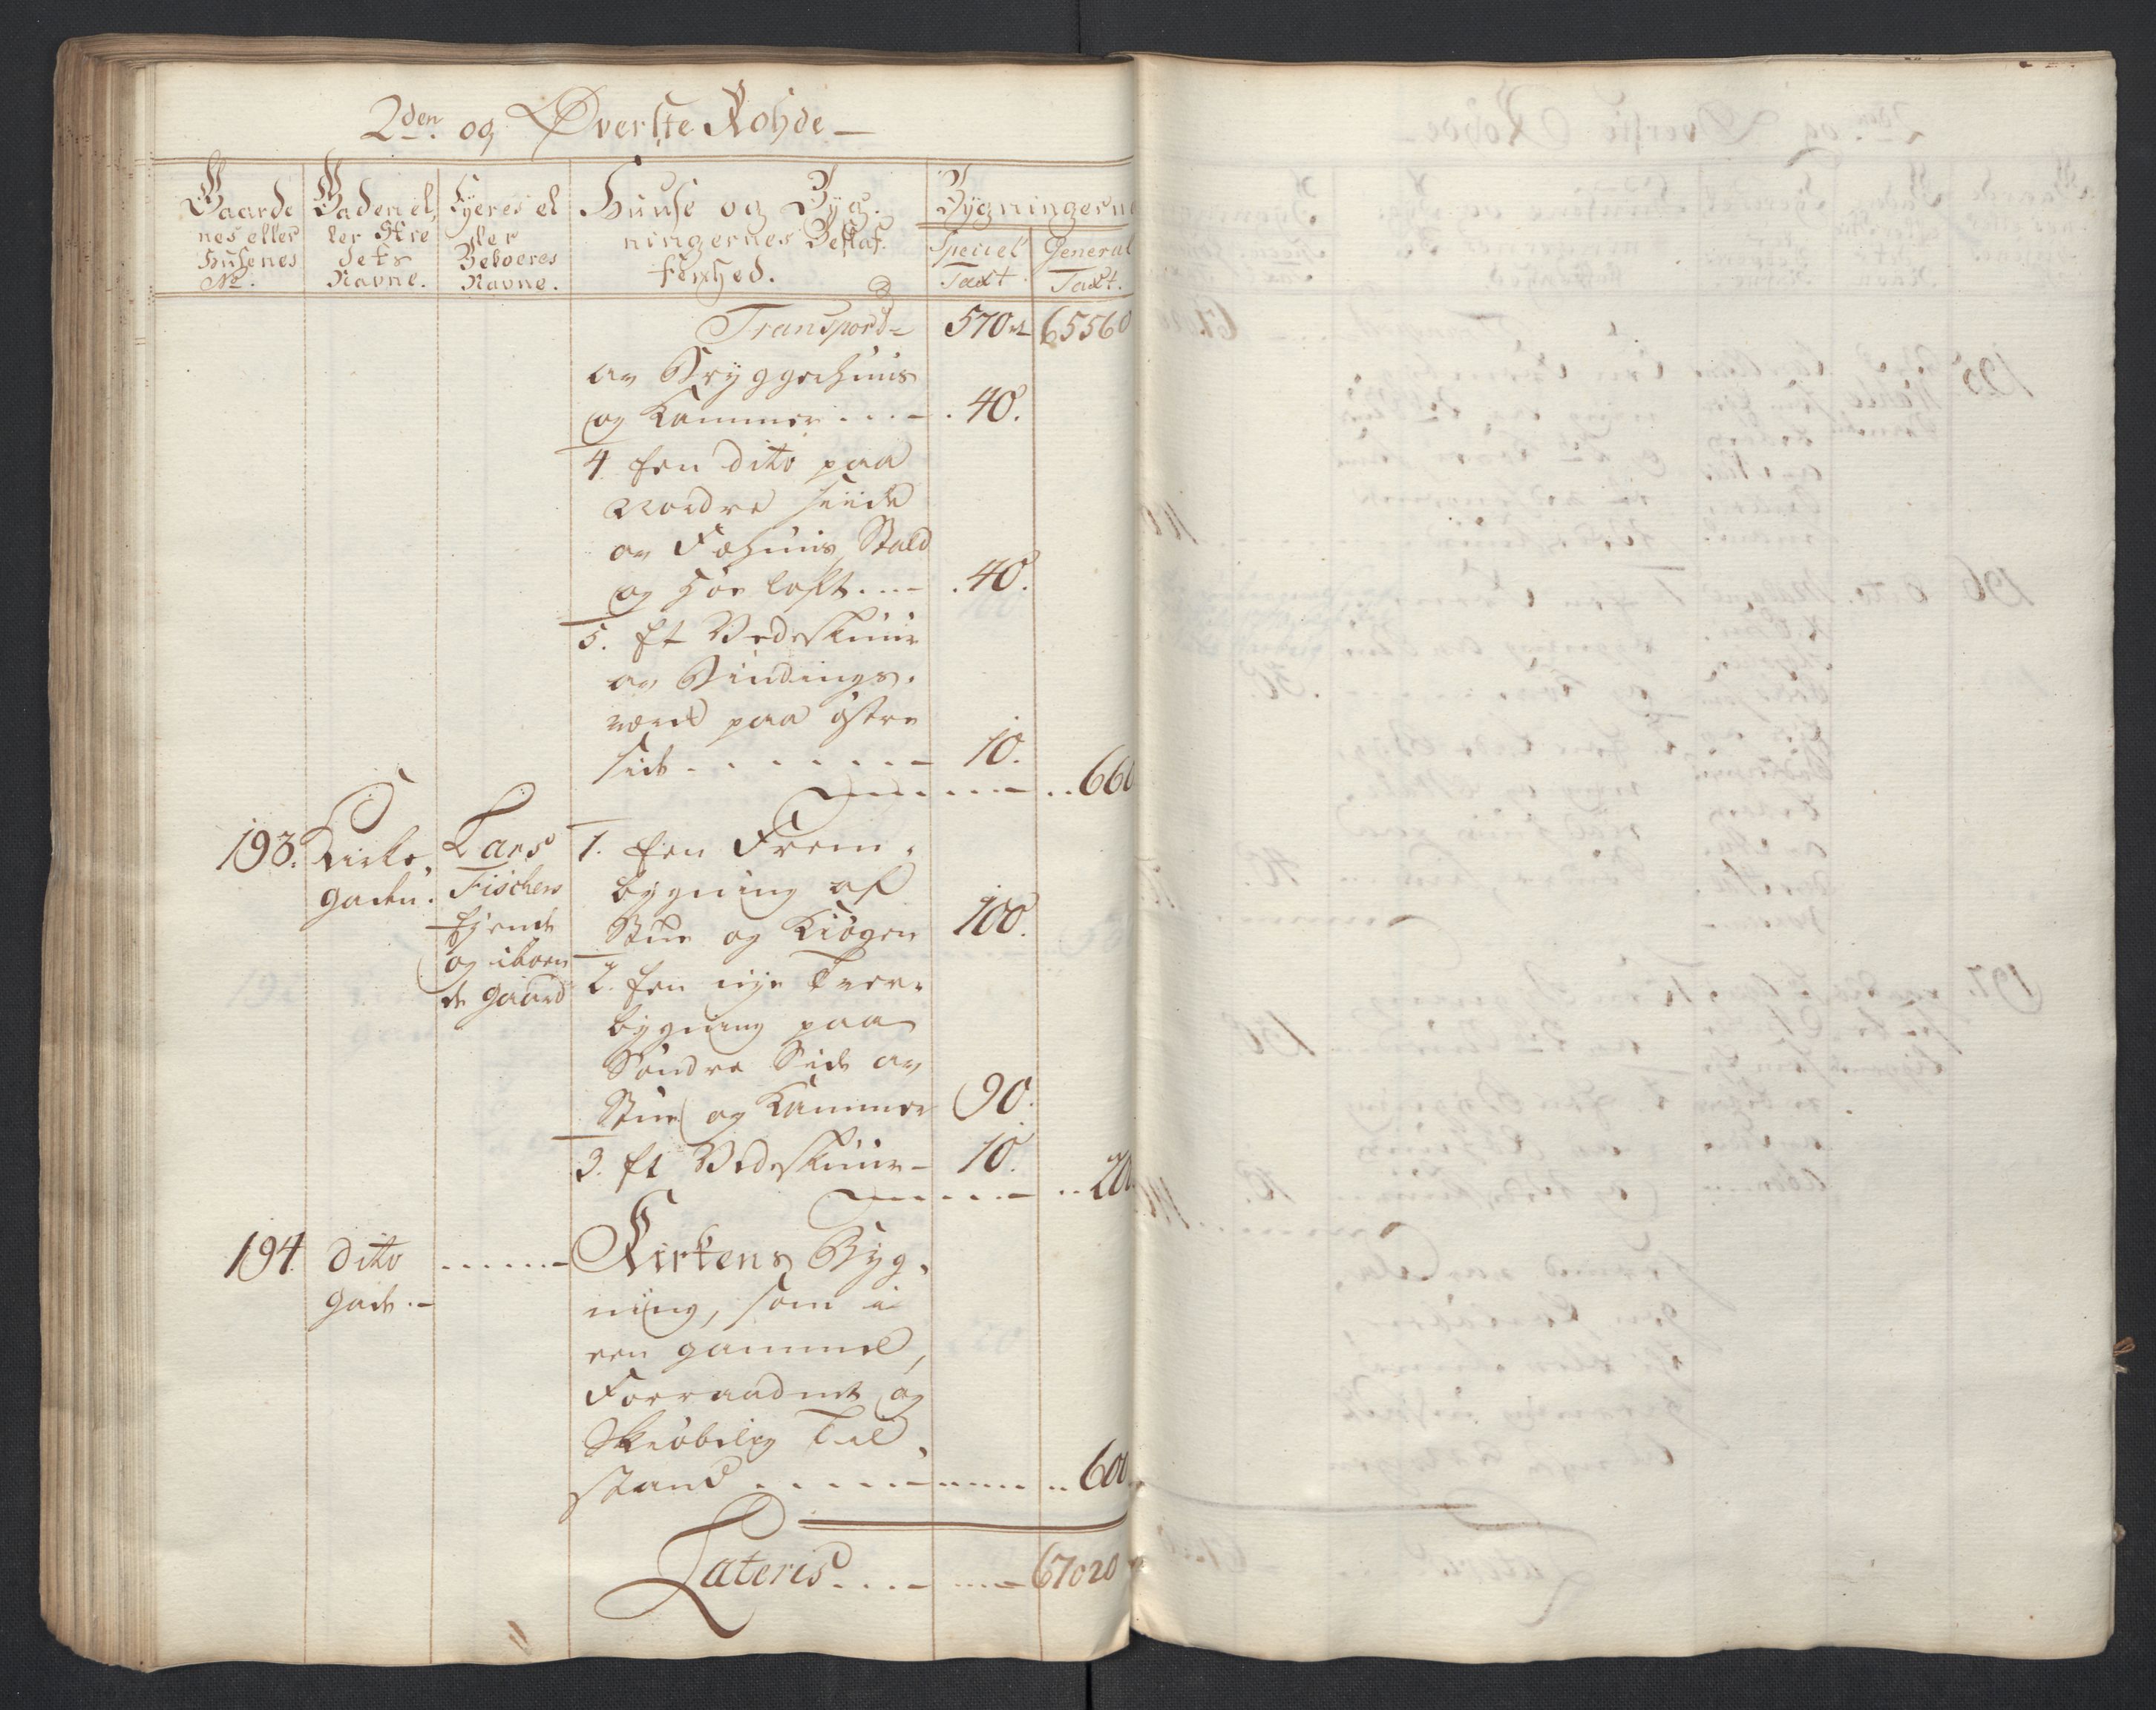 2den og Øverste Rohde
Gaarde
nes eller
Husenes
No.
Gaden el
ler Stre
dets
Navne.
Eyeres el
ler
Beboeres
Navne.
Huuse og Byg.
ningernes Beskaf.
fenhed.
Bygningerne
Speciel
Taxt
General
Taxt.
Transport 570 rd 65560
av Bryggerhuus
og Kammer .... 40.
4. Een dito paa
Nordre Siide
av Fæhuus, Stald
og Höe loft.... 40.
5. Et Vedeskuur
av Bindings.
værk paa östre
side ....... 10.
660
193. Kirke
gaden.
Lars
Fischers
Eyende
og iboen
de Gaard
1. Een Frem.
bygning af
Stue og Kiögen 100.
2. Een nye Tver.
bygning paa
Söndre Side av
Stue og Kammer 90.
3. Et Vedeskuur 10.
200
194 dito
gade.
Kirkens Byg.
ning, som i
een gammel,
Forraadnet og
Skröbelig Til
stand ..... 600
Lateris.... 67020